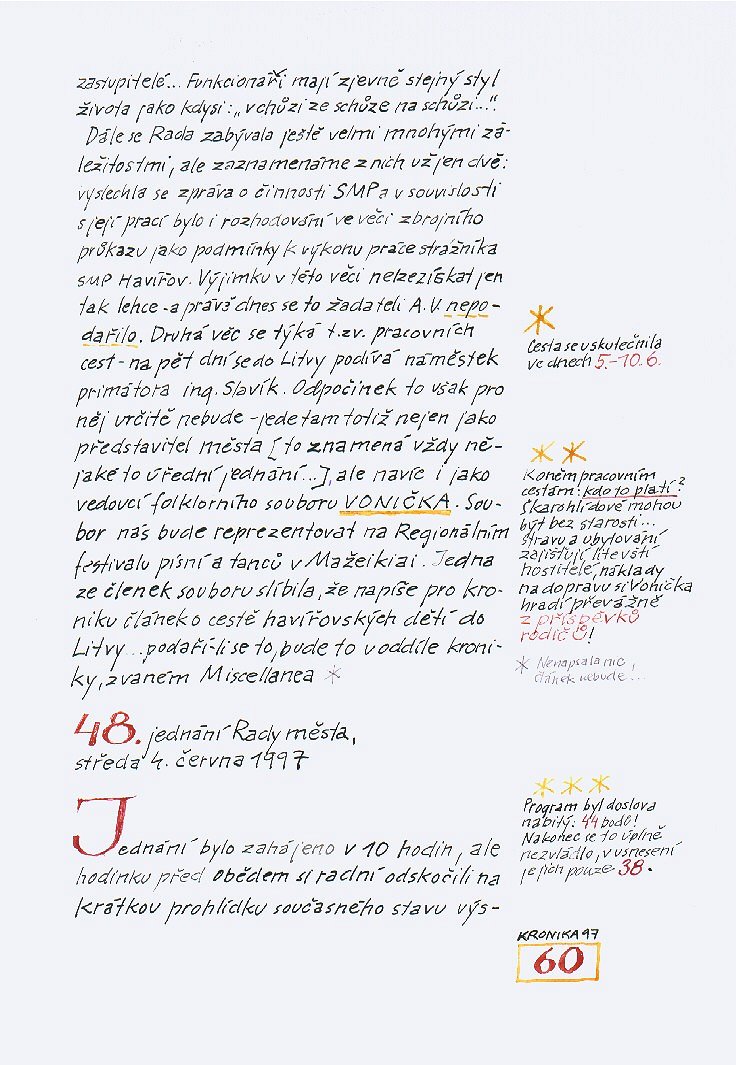 zastupitelé... Funkcionáři mají zjevně stejný styl
života jako kdysi: „v chůzi ze schůze na schůzi...“.
Dále se Rada zabývala ještě velmi mnohými zá-
ležitostmi, ale zaznamenáme z nich už jen dvě:
vyslechla se zpráva o činnosti SMP a v souvislosti
s její prací bylo i rozhodování ve věci zbrojního
průkazu jako podmínky k výkonu práce strážníka
SMP Havířov. Výjimku v této věci nelze získat jen
tak lehce - a právě dnes se to žadateli A.V. nepo-
dařilo. Druhá věc se týká t.zv. pracovních
cest - na pět dní se do Litvy podívá náměstek
primátora ing. Slavík. Odpočinek to však pro
něj určitě nebude - jede tam totiž nejen jako
představitel města [to znamená vždy ně-
jaké to úřední jednání...], ale navíc i jako
vedoucí folklorního souboru VONIČKA. Sou-
bor nás bude reprezentovat na Regionálním
festivalu písní a tanců v Mažeikiai. Jedna
ze členek souboru slíbila, že napíše pro kro-
niku článek o cestě havířovských dětí do
Litvy... podaří-li se to, bude to v oddíle kroni-
ky, zvaném Miscellanea *
48. jednání Rady města,
středa 4. června 1997
Jednání bylo zahájeno v 10 hodin, ale
hodinku před obědem si radní odskočili na
krátkou prohlídku současného stavu výs-
*
Cesta se uskutečnila
ve dnech 5.-10.6.
* *
Koněm pracovním
cestám: kdo to platí?
Škarohlídové mohou
být bez starosti...
stravu a ubytování
zajišťují litevští
hostitelé, náklady
na dopravu si Vonička
hradí převážně
z příspěvků
rodičů!
* Nenapsala nic,
článek nebude...
* * *
Program byl doslova
nabitý: 44 bodů!
Nakonec se to úplně
nezvládlo, v usnesení
je jich pouze 38.
KRONIKA 97
60